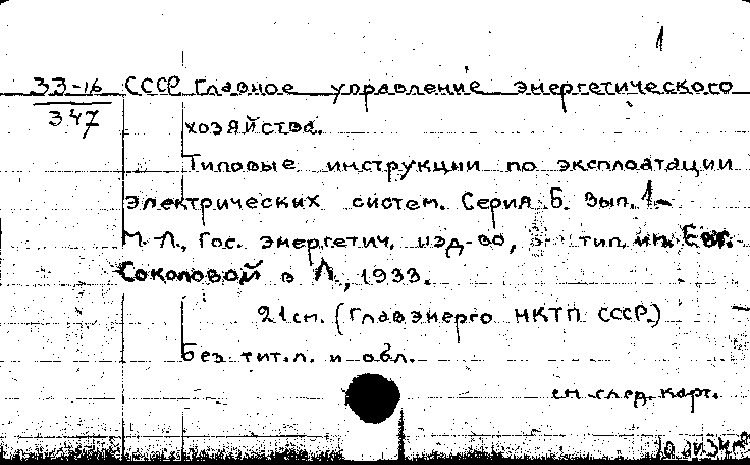 1
33-16 СССР Главное управление энергетического
347
хозяйства.
Типовые инструкции по эксплоатации
электрических систем. Серия Б. Вып. 1-
М.-Л., Гос. энергетич. изд-во, тип. им. Евг.
Соколовой в Л., 1933.
21 см. (Главэнерго НКТП СССР.)
Без тит. л. и обл.
см. след. карт.